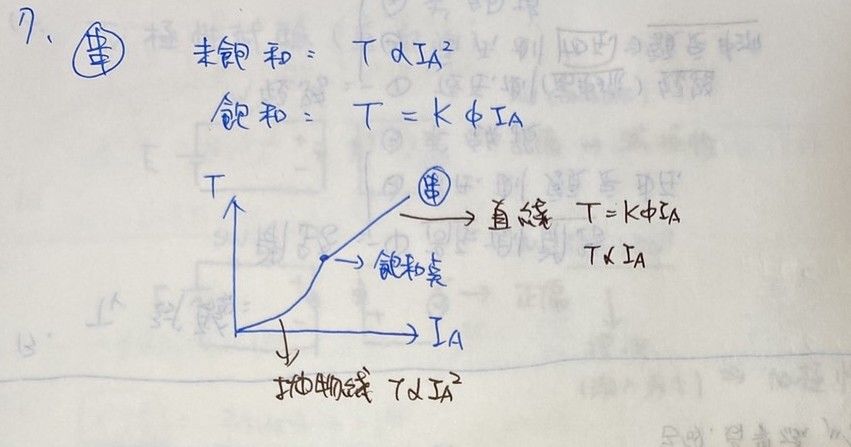 7. 串 未飽和： T ∝ IA²
飽和： T = KΦIA
T
串
直線 T = KΦIA
T ∝ IA
飽和點
IA
拋物線 T ∝ IA²